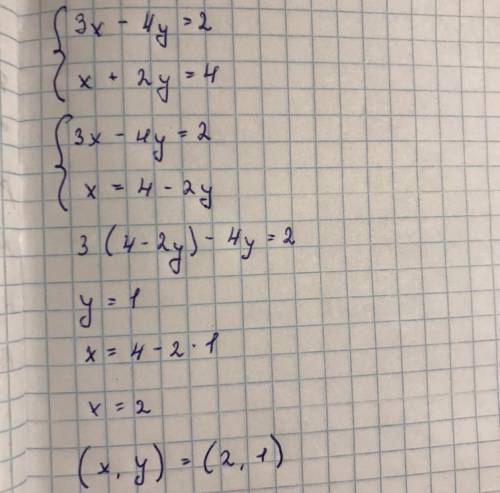 3x - 4y = 2
x + 2y = 4
3x - 4y = 2
x = 4 - 2y
3 (4 - 2y) - 4y = 2
y = 1
x = 4 - 2 · 1
x = 2
(x, y) = (2, 1)